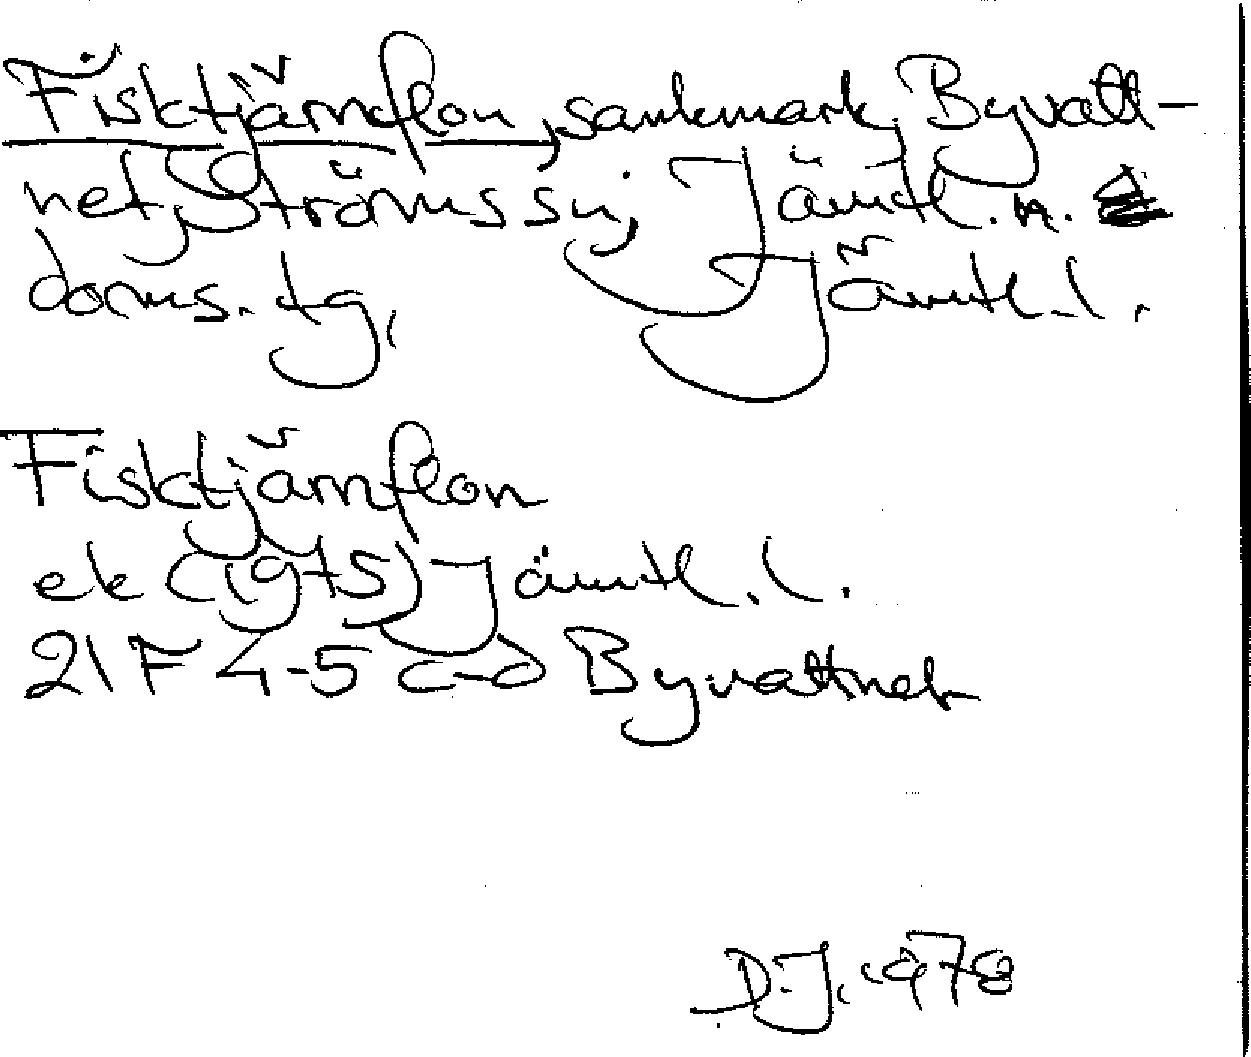 Fisktjärnflon, sankmark, Byvatt-
net, Ströms sn, Jämtl. n.
doms. tg, Jämtl. l.
Fisktjärnflon
ek (1975) Jämtl. l.
21 F 4-5 c-d Byvattnet
D.J. 1978